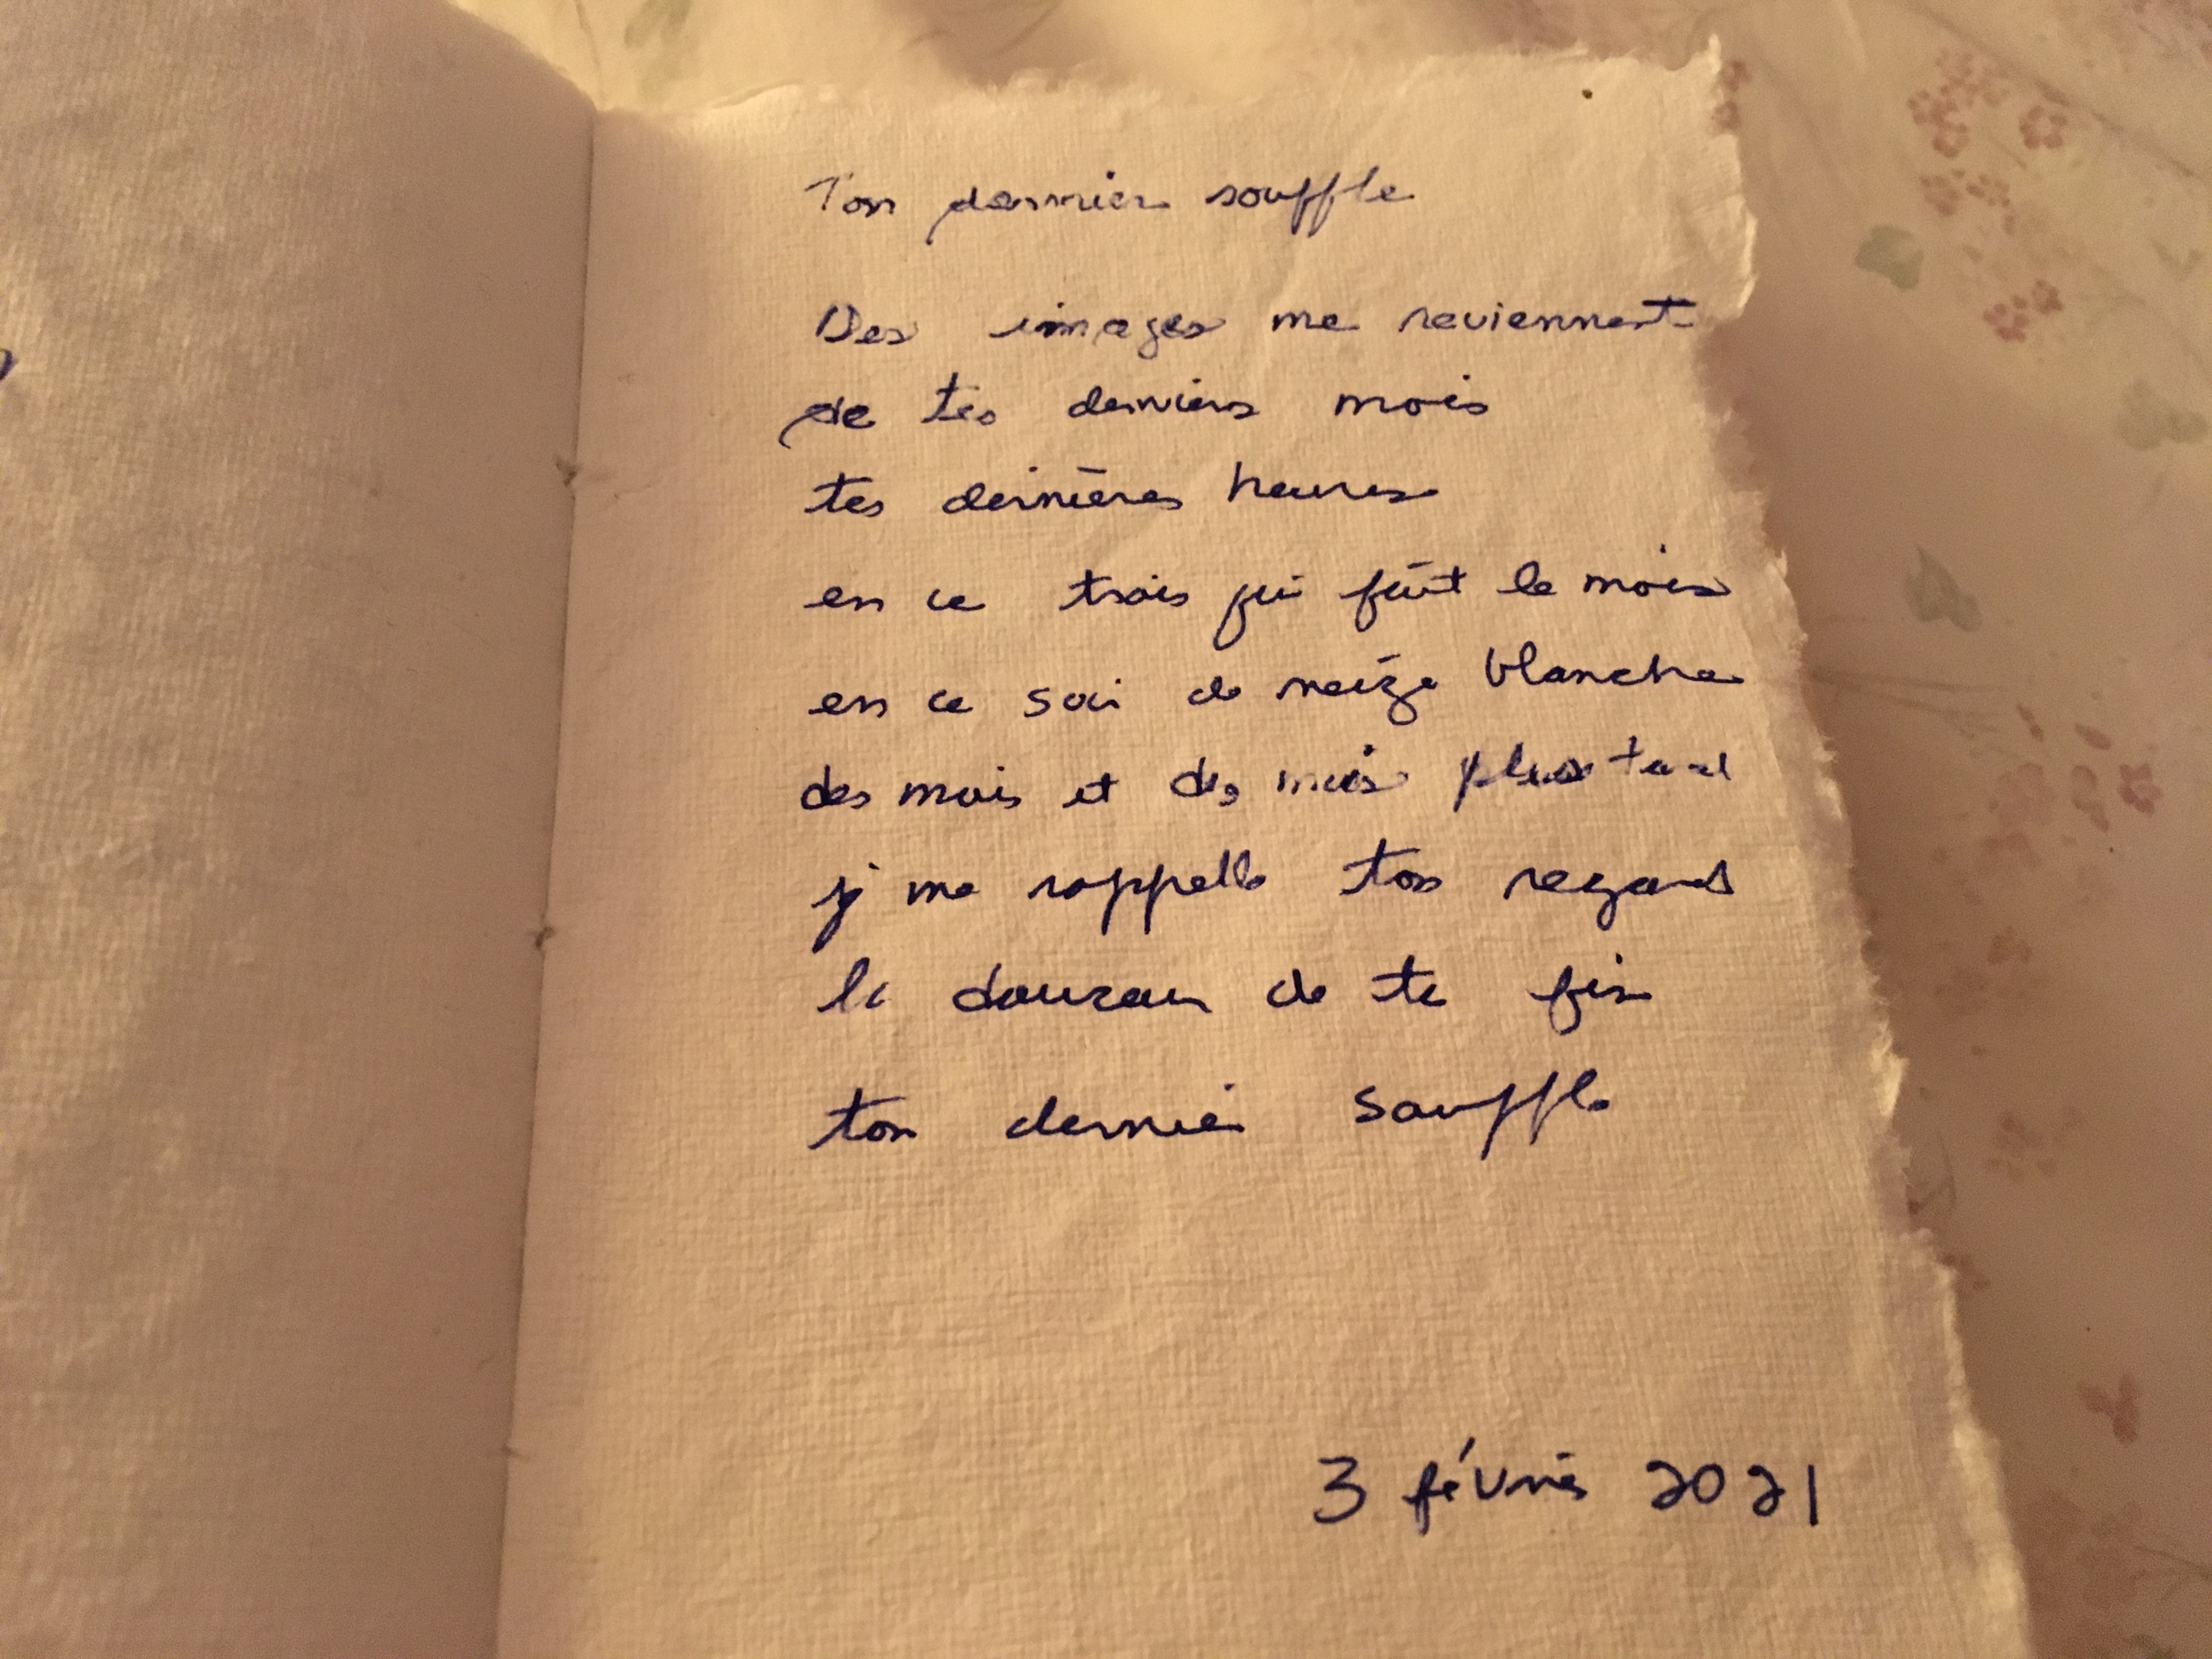 Ton dernier souffle
Des images me reviennent
de tes derniers mois
tes dernières heures
en ce trois qui fût le mois
en ce soir de neige blanche
des mois et des mois plus tard
je me rappelle ton regard
la douceur de ta fin
ton dernier souffle
3 février 2021